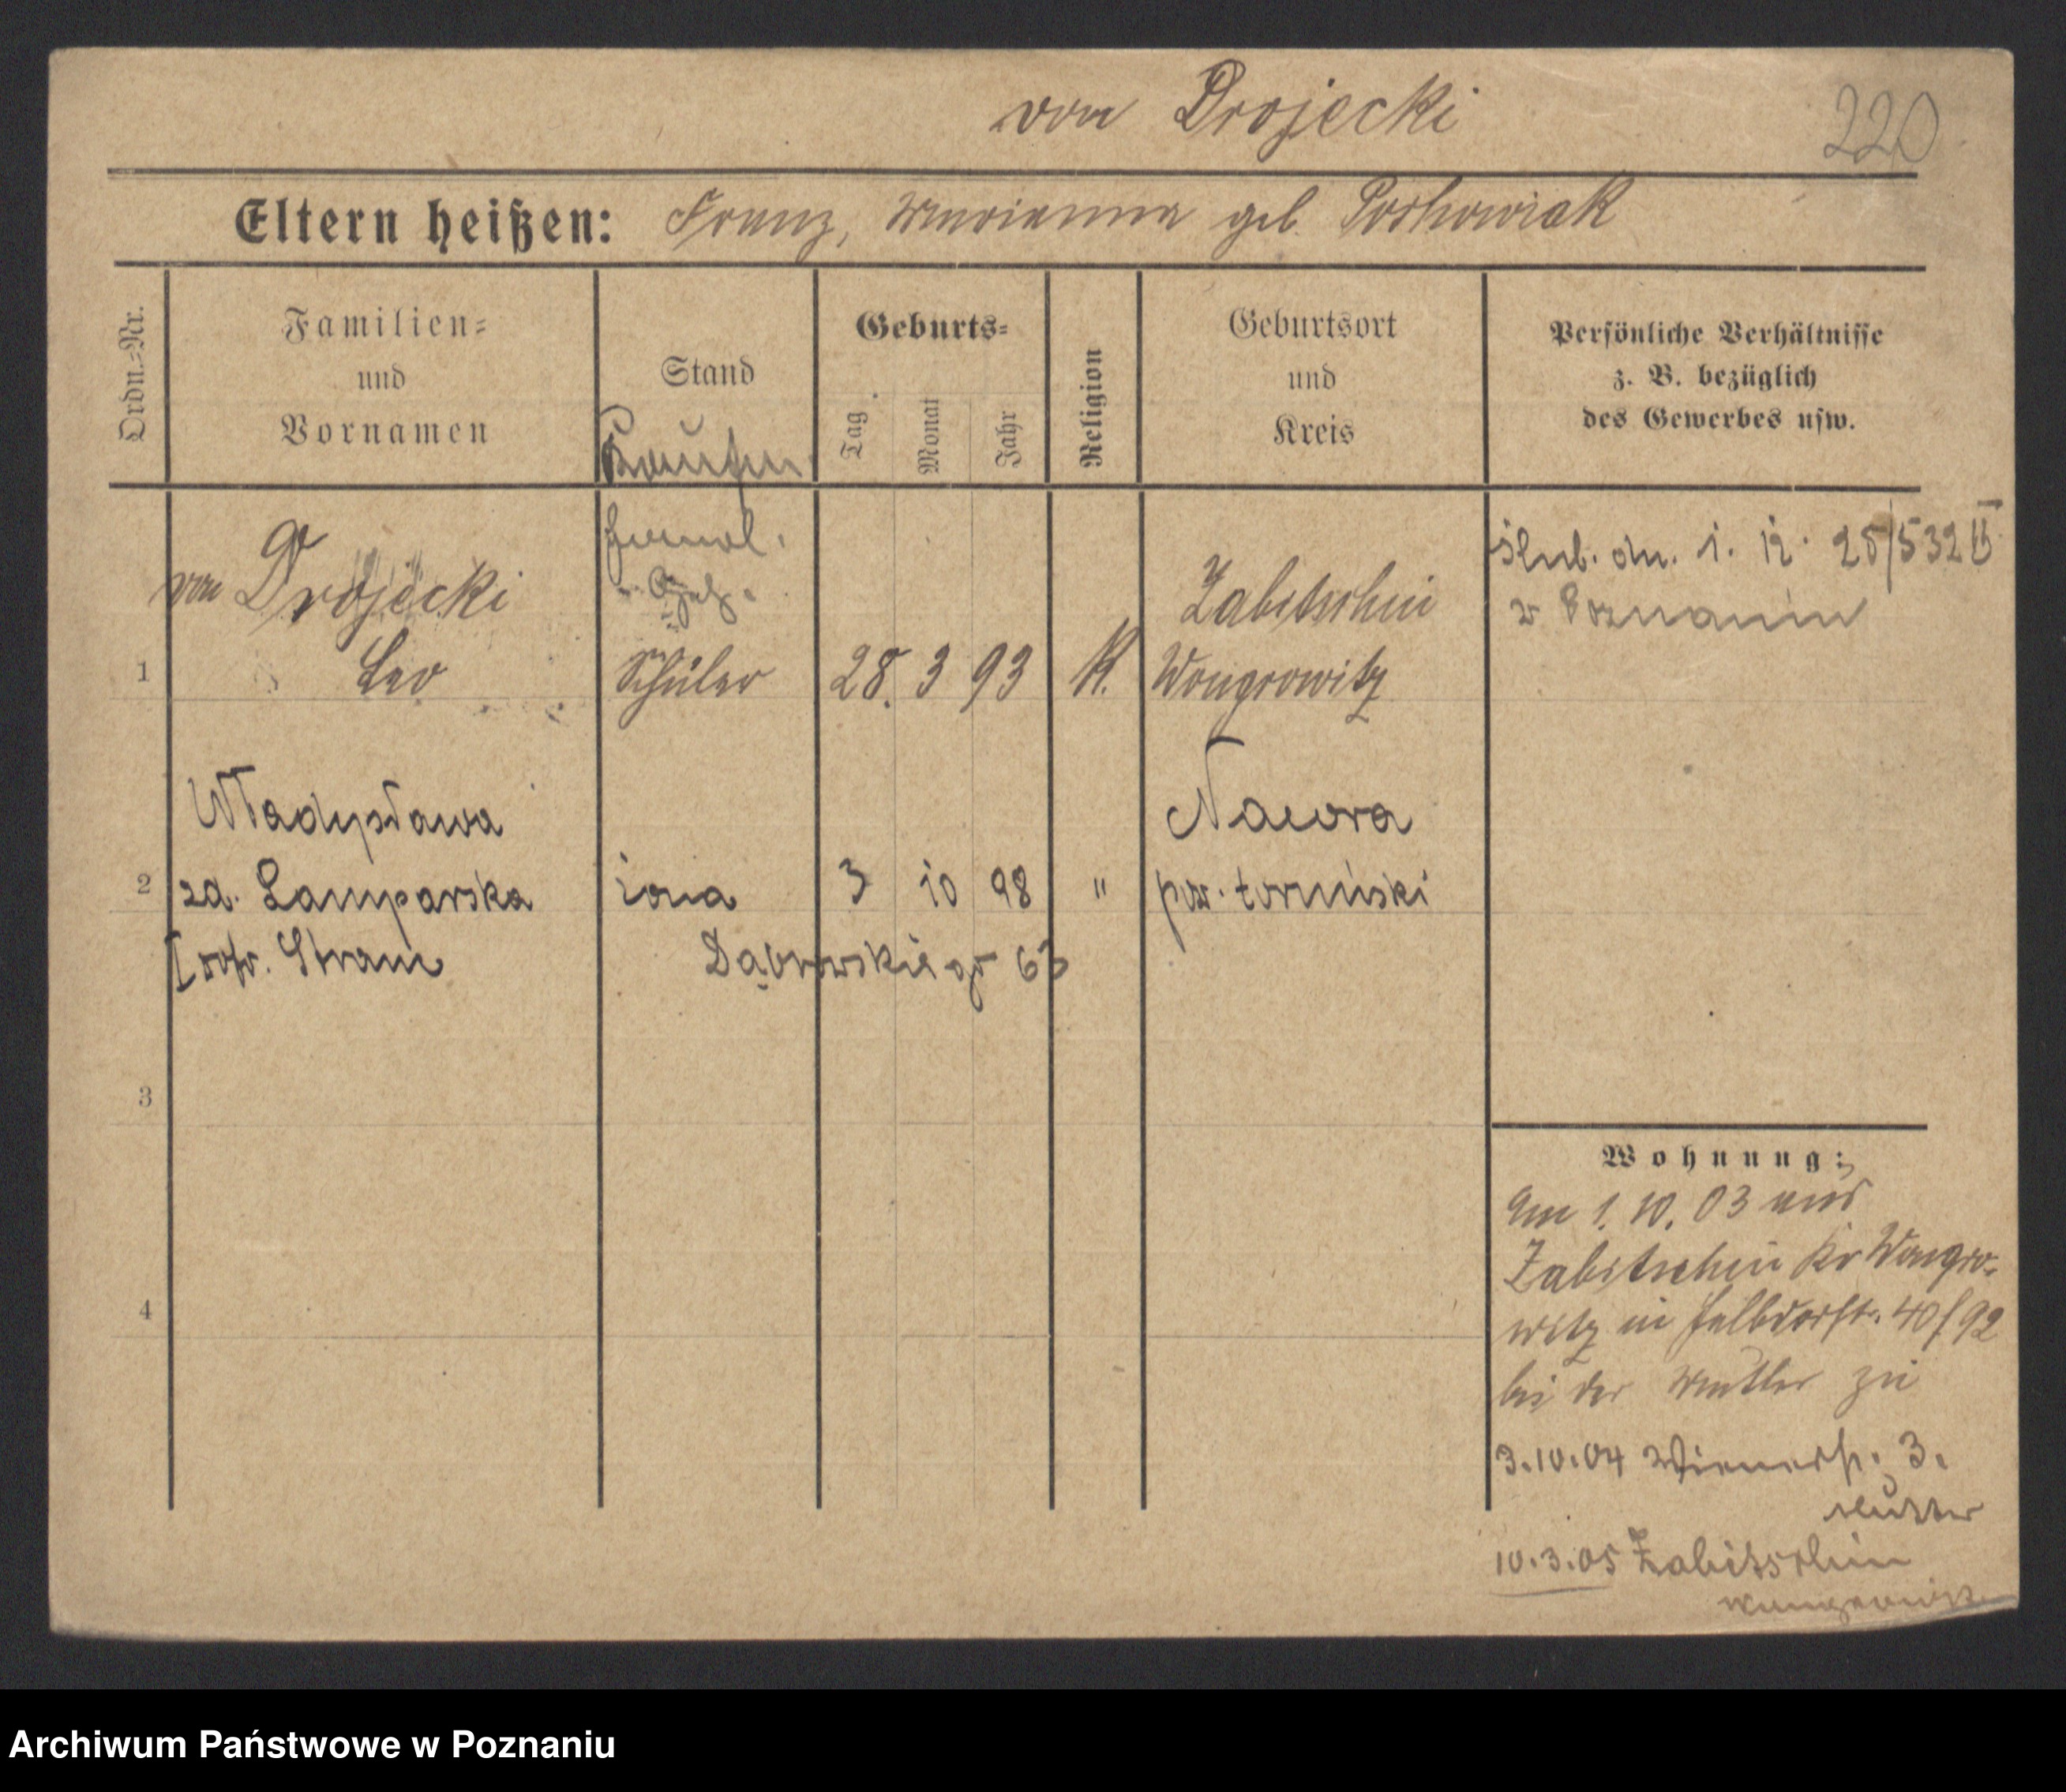 von Drojecki
220
Eltern heißen: Franz, Marianna geb.
Ordn.=Nr.
Familien=
und
Vornamen
Stand
Geburts=
Tag
Monat
Jahr
Religion
Geburtsort
und
Kreis
Persönliche Verhältnisse
z. B. bezüglich
des Gewerbes usw.
1
von Drojecki
Leo
Schüler
28. 3 93
K.
Zabitschin
Wongrowitz
ślub. dn. 1. 12. 25/532 II
w Poznaniu
2
Władysława
zd. Lamparska
żona
3 10 98
"
Nawra
pow. toruński
Dąbrowskiego 63
3
4
Wohnung:
Am 1. 10. 03 aus
Zabitschin Kr Wongro-
witz in 40/92
bei der Mutter zu
3.10.04 Wienerstr. 3.
Mutter
10.3.05 Zabitschin
Wongrowitz
Archiwum Państwowe w Poznaniu